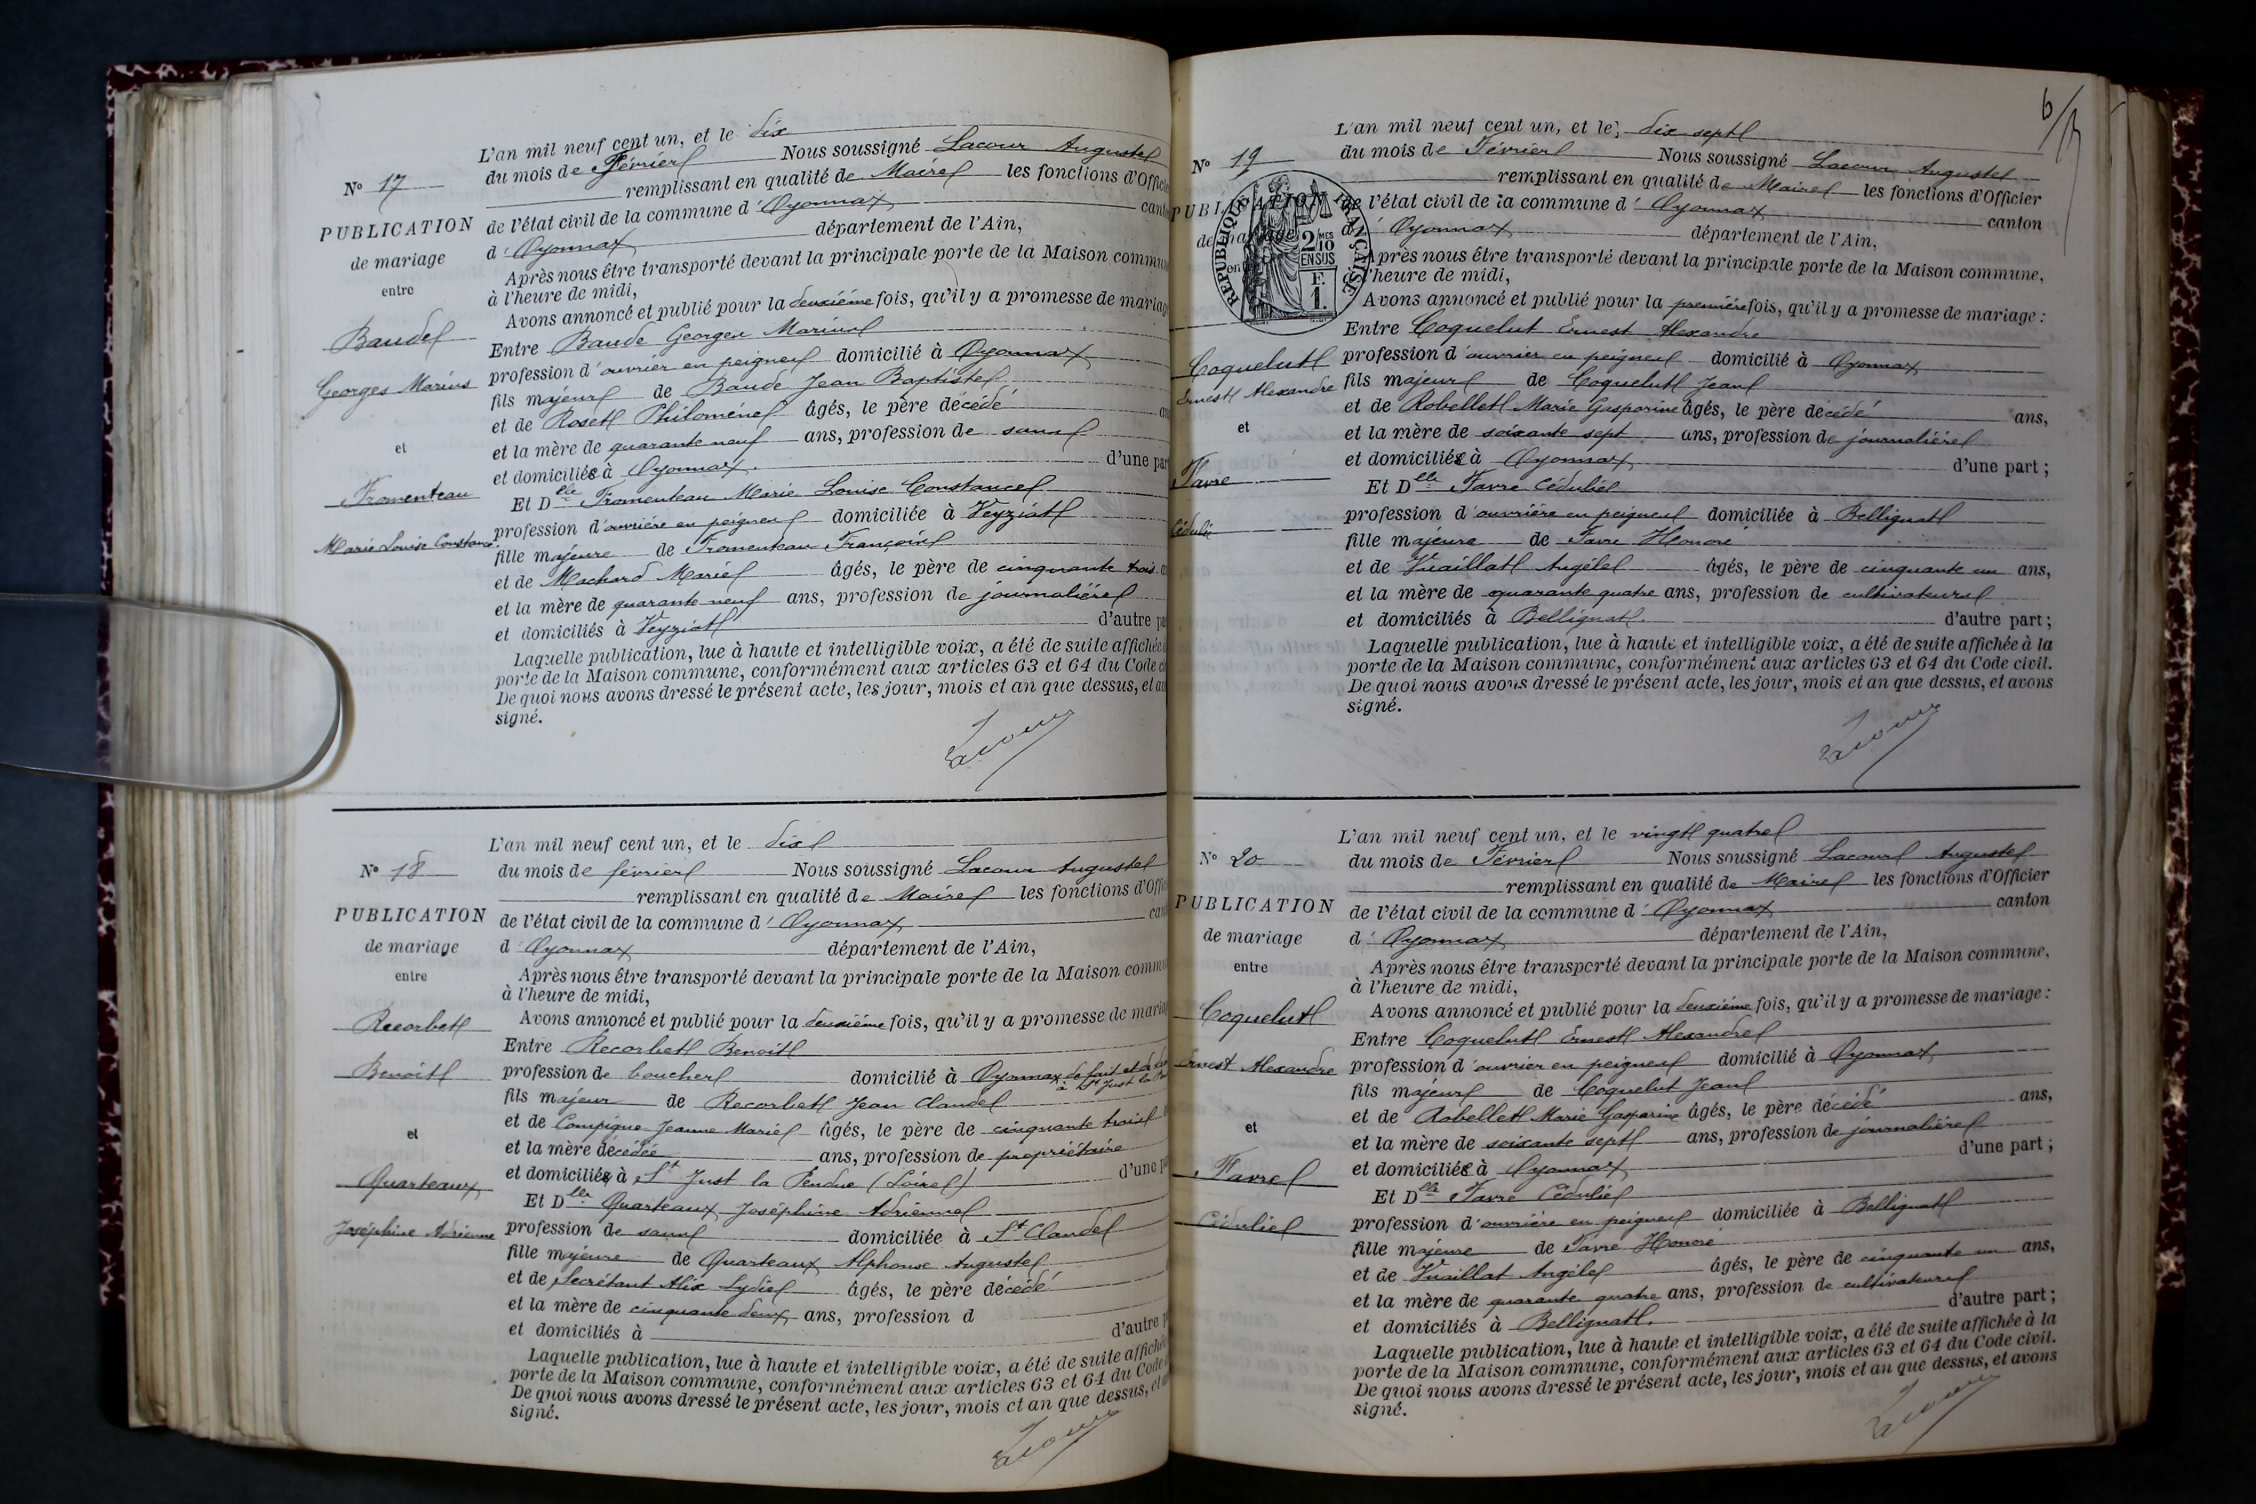 L'an mil neuf cent un, et le dix
du mois de Février Nous soussigné Lacour Auguste
N° 17
remplissant en qualité de Maire les fonctions d'Officier
PUBLICATION
de l'état civil de la commune d'Oyonnax canton
d'Oyonnax département de l'Ain,
de mariage
entre
Après nous être transporté devant la principale porte de la Maison commune
à l'heure de midi,
Avons annoncé et publié pour la deuxième fois, qu'il y a promesse de mariage
Baude
Georges Marius
Entre Baude Georges Marius
profession d'ouvrier en peignes domicilié à Oyonnax
fils majeur de Baude Jean Baptiste
et de Roset Philomène âgés, le père décédé
et
et la mère de quarante neuf ans, profession de sans
et domiciliée à Oyonnax. d'une part
Fromenteau
Et Dlle Fromenteau Marie Louise Constance
Marie Louise Constance
profession d'ouvrière en peignes domiciliée à Veyziat
fille majeure de Fromenteau François
et de Machard Marie âgés, le père de cinquante trois
et la mère de quarante neuf ans, profession de journalière
et domiciliés à Veyziat d'autre part
Laquelle publication, lue à haute et intelligible voix, a été de suite affichée à
porte de la Maison commune, conformément aux articles 63 et 64 du Code
De quoi nous avons dressé le présent acte, les jour, mois et an que dessus, et
signé.
Lacour
L'an mil neuf cent un, et le dix
N° 18
du mois de février Nous soussigné Lacour Auguste
remplissant en qualité de Maire les fonctions d'Officier
PUBLICATION
de l'état civil de la commune d'Oyonnax canton
de mariage
d'Oyonnax département de l'Ain,
entre
Après nous être transporté devant la principale porte de la Maison commune
à l'heure de midi,
Recorbet
Avons annoncé et publié pour la deuxième fois, qu'il y a promesse de mariage
Entre Recorbet Benoit
Benoit
profession de boucher domicilié à Oyonnax de fait et de
à St Just la
fils majeur de Recorbet Jean Claude
et
et de Compigne Jeanne Marie âgés, le père de cinquante trois
et la mère décédée ans, profession de propriétaire
et domiciliés à St Just la Pendue (Loire) d'une part
Quarteaux
Et Dlle Quarteaux Joséphine Adrienne
Joséphine Adrienne
profession de sans domiciliée à St Claude
fille majeure de Quarteaux Alphonse Auguste
et de Secrétant Alix Lydie âgés, le père décédé
et la mère de cinquante deux ans, profession d
et domiciliés à d'autre
Laquelle publication, lue à haute et intelligible voix, a été de suite affichée
porte de la Maison commune, conformément aux articles 63 et 64 du Code
De quoi nous avons dressé le présent acte, les jour, mois et an que dessus, et
signé.
Lacour
6
L'an mil neuf cent un, et le dix sept
N° 19
du mois de Février Nous soussigné Lacour Auguste
remplissant en qualité de Maire les fonctions d'Officier
PUBLICATION
de l'état civil de la commune d'Oyonnax canton
de mariage
d'Oyonnax département de l'Ain,
entre
RÉPUBLIQUE FRANÇAISE
2 MES
10
EN SUS
F.
1.
Après nous être transporté devant la principale porte de la Maison commune,
à l'heure de midi,
Avons annoncé et publié pour la première fois, qu'il y a promesse de mariage :
Entre Coquelut Ernest Alexandre
Coquelut
Ernest Alexandre
profession d'ouvrier en peignes domicilié à Oyonnax
fils majeur de Coquelut Jean
et de Robellet Marie Gasparine âgés, le père décédé ans,
et
et la mère de soixante sept ans, profession de journalière
et domiciliée à Oyonnax d'une part ;
Favre
Et Dlle Favre Cédulie
Cédulie
profession d'ouvrière en peignes domiciliée à Bellignat
fille majeure de Favre Honoré
et de Vuaillat Angèle âgés, le père de cinquante un ans,
et la mère de quarante quatre ans, profession de cultivateurs
et domiciliés à Bellignat. d'autre part ;
Laquelle publication, lue à haute et intelligible voix, a été de suite affichée à la
porte de la Maison commune, conformément aux articles 63 et 64 du Code civil.
De quoi nous avons dressé le présent acte, les jour, mois et an que dessus, et avons
signé.
Lacour
L'an mil neuf cent un, et le vingt quatre
N° 20
du mois de Février Nous soussigné Lacour Auguste
remplissant en qualité de Maire les fonctions d'Officier
PUBLICATION
de l'état civil de la commune d'Oyonnax canton
de mariage
d'Oyonnax département de l'Ain,
entre
Après nous être transporté devant la principale porte de la Maison commune,
à l'heure de midi,
Coquelut
Avons annoncé et publié pour la deuxième fois, qu'il y a promesse de mariage :
Entre Coquelut Ernest Alexandre
Ernest Alexandre
profession d'ouvrier en peignes domicilié à Oyonnax
fils majeur de Coquelut Jean
et de Robellet Marie Gasparine âgés, le père décédé ans,
et
et la mère de soixante sept ans, profession de journalière
et domiciliée à Oyonnax d'une part ;
Favre
Et Dlle Favre Cédulie
Cédulie
profession d'ouvrière en peignes domiciliée à Bellignat
fille majeure de Favre Honoré
et de Vuaillat Angèle âgés, le père de cinquante un ans,
et la mère de quarante quatre ans, profession de cultivateurs
et domiciliés à Bellignat. d'autre part ;
Laquelle publication, lue à haute et intelligible voix, a été de suite affichée à la
porte de la Maison commune, conformément aux articles 63 et 64 du Code civil.
De quoi nous avons dressé le présent acte, les jour, mois et an que dessus, et avons
signé.
Lacour